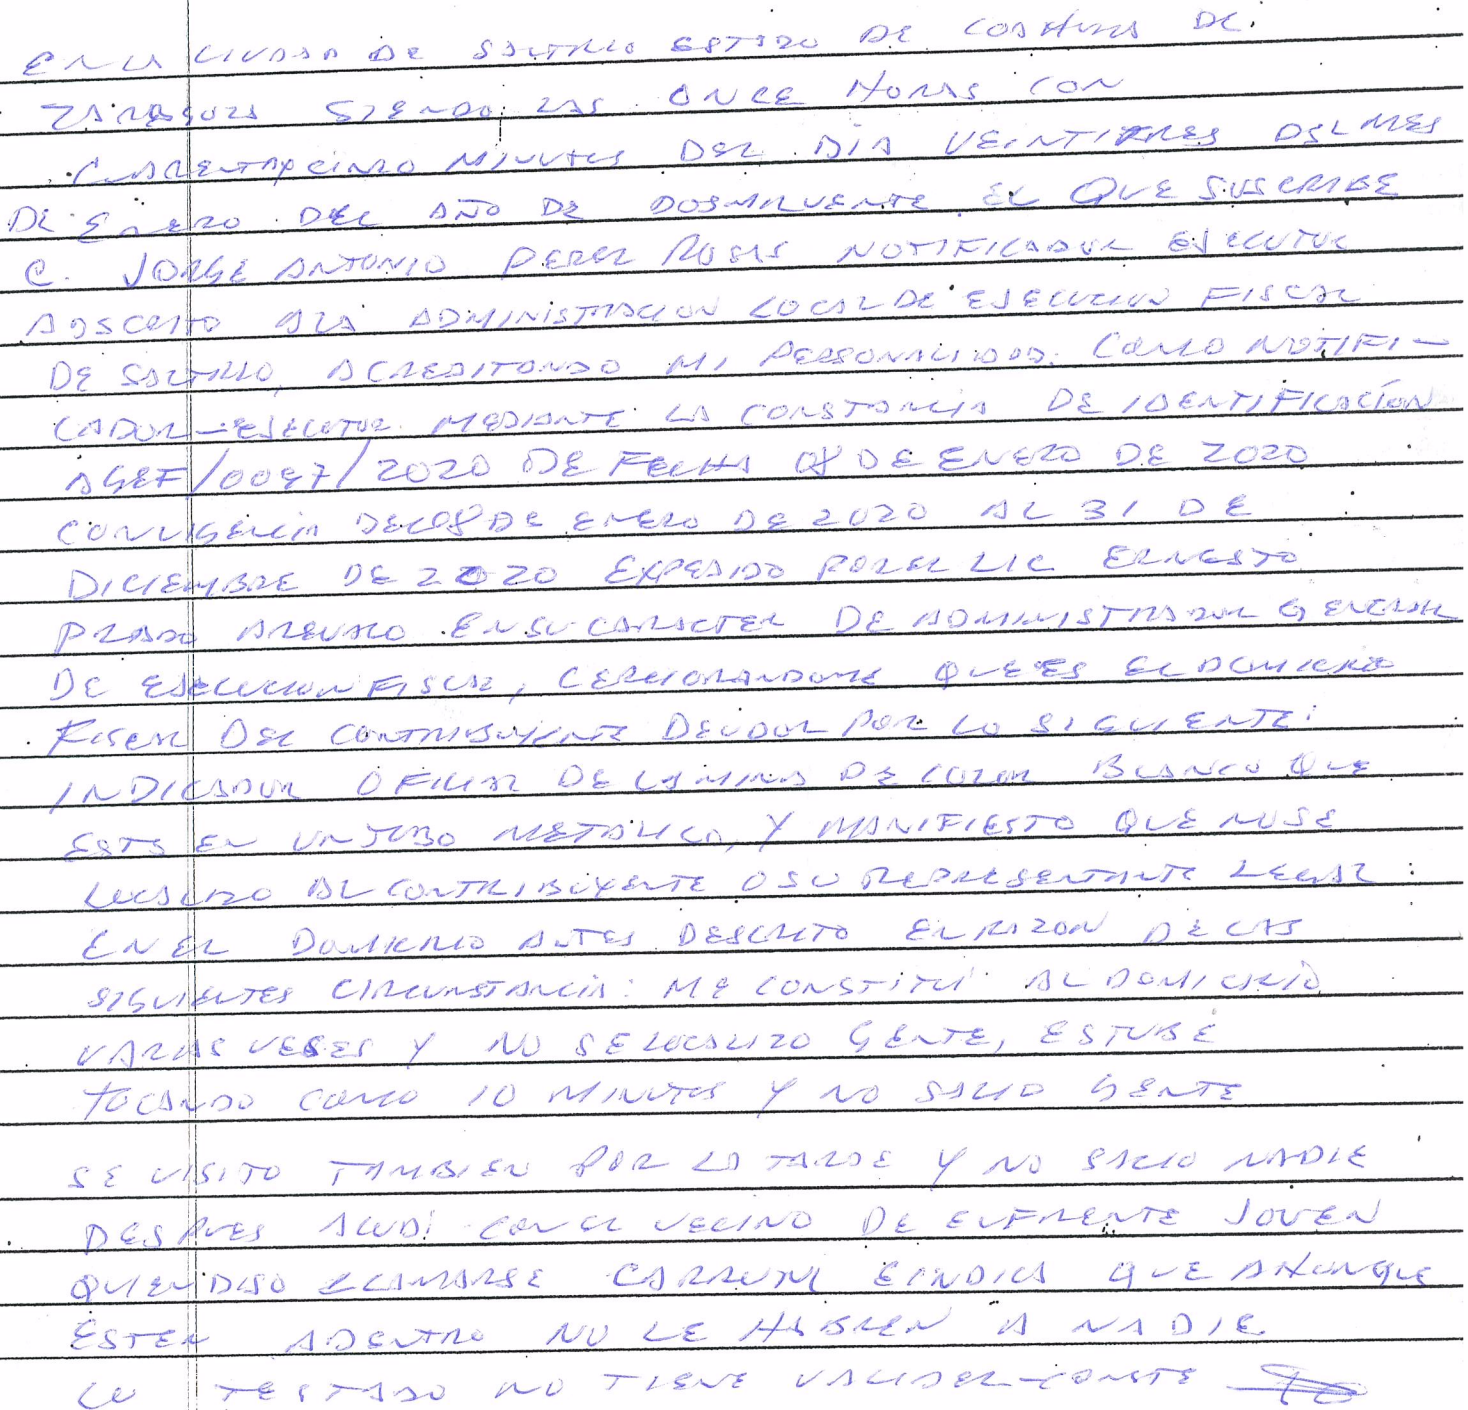 EN LA CIUDAD DE SALTILLO ESTADO DE COAHUILA DE
ZARAGOZA SIENDO LAS ONCE HORAS CON
CUARENTAYCINCO MINUTOS DEL DIA VEINTITRES DEL MES
DE ENERO DEL AÑO DE DOSMILVEINTE EL QUE SUSCRIBE
C. JORGE ANTONIO PEREZ ROSAS NOTIFICADOR EJECUTOR
ADSCRITO ALA ADMINISTRACION LOCAL DE EJECUCION FISCAL
DE SALTILLO, ACREDITANDO MI PERSONALIDAD COMO NOTIFI-
CADOR-EJECUTOR MEDIANTE LA CONSTANCIA DE IDENTIFICACIÓN
AGEF/0047/2020 DE FECHA 08 DE ENERO DE 2020
CONVIGENCIA DEL 08 DE ENERO DE 2020 AL 31 DE
DICIEMBRE DE 2020 EXPEDIDO POR EL LIC ERNESTO
PRADO AREVALO EN SU CARACTER DE ADMINISTRADOR GENERAL
DE EJECUCION FISCAL, CERCIORANDOME QUE ES EL DOMICILIO
FISCAL DEL CONTRIBUYENTE DEUDOR POR LO SIGUIENTE:
INDICADOR OFICIAL DE LAMINA DE COLOR BLANCO QUE
ESTA EN UN TUBO METALICO, Y MANIFIESTO QUE NO SE
LOCALIZO AL CONTRIBUYENTE O SU REPRESENTANTE LEGAL
EN EL DOMICILIO ANTES DESCRITO EN RAZON DE LAS
SIGUIENTES CIRCUNSTANCIA: ME CONSTITUÍ AL DOMICILIO
VARIAS VESES Y NO SE LOCALIZO GENTE, ESTUBE
TOCANDO COMO 10 MINUTOS Y NO SALIO GENTE
SE VISITO TAMBIEN POR LA TARDE Y NO SALIO NADIE
DESPUES ACUDI CON EL VECINO DE ENFRENTE JOVEN
QUIEN DIJO LLAMARSE E INDICA QUE AHUNQUE
ESTEN ADENTRO NO LE HABREN A NADIE
LO TESTADO NO TIENE VALIDEZ-CONSTE